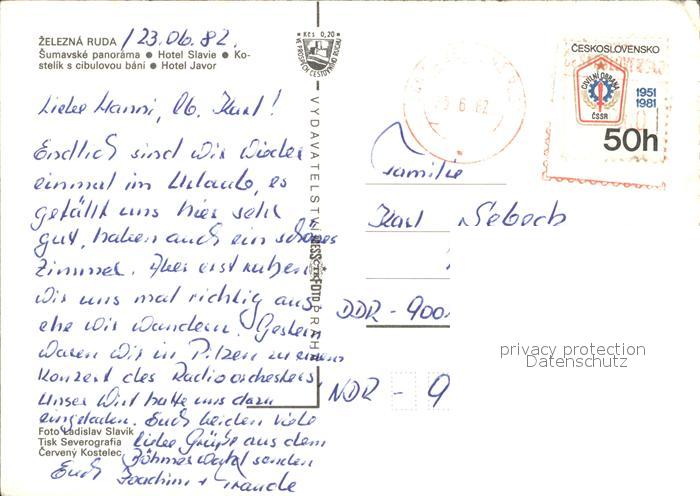 ŽELEZNÁ RUDA /23.06.82.
Šumavské panoráma ● Hotel Slavie ● Ko-
stelík s cibulovou bání ● Hotel Javor
Liebe Hanni, lb. Karl!
Endlich sind wir wieder
einmal im Urlaub, es
gefällt uns hier sehr
gut, haben auch ein schönes
Zimmer. Aber erst ruhen
wir uns mal richtig aus
ehe wir wandern. Gestern
waren wir in Pilzen zu einem
Konzert des Radioorchesters
Unser Wirt hatte uns dazu
eingeladen. Euch beiden viele
liebe Grüße aus dem
Böhmerwald senden
Euch Joachim + Traude
Foto Ladislav Slavík
Tisk Severografia
Červený Kostelec
Kčs 0,20
VE PROSPĚCH CESTOVNÍHO RUCHU
VYDAVATELSTVÍ PRESSFOTO PRAHA
6.82
ČESKOSLOVENSKO
CIVILNÍ OBRANA
ČSSR
1951
1981
50h
Familie
Karl
DDR - 900
NDR - 9
privacy protection
Datenschutz